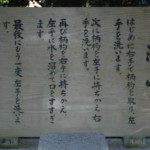 はじめに右手で柄杓を取り、左
手を洗います。
次に柄杓を左手に持ちかえ、右
手を洗います。
再び柄杓を右手に持ちかえ、
左手に水を溜めて口をすすぎ
ます。
最後にもう一度左手を洗い
ます。